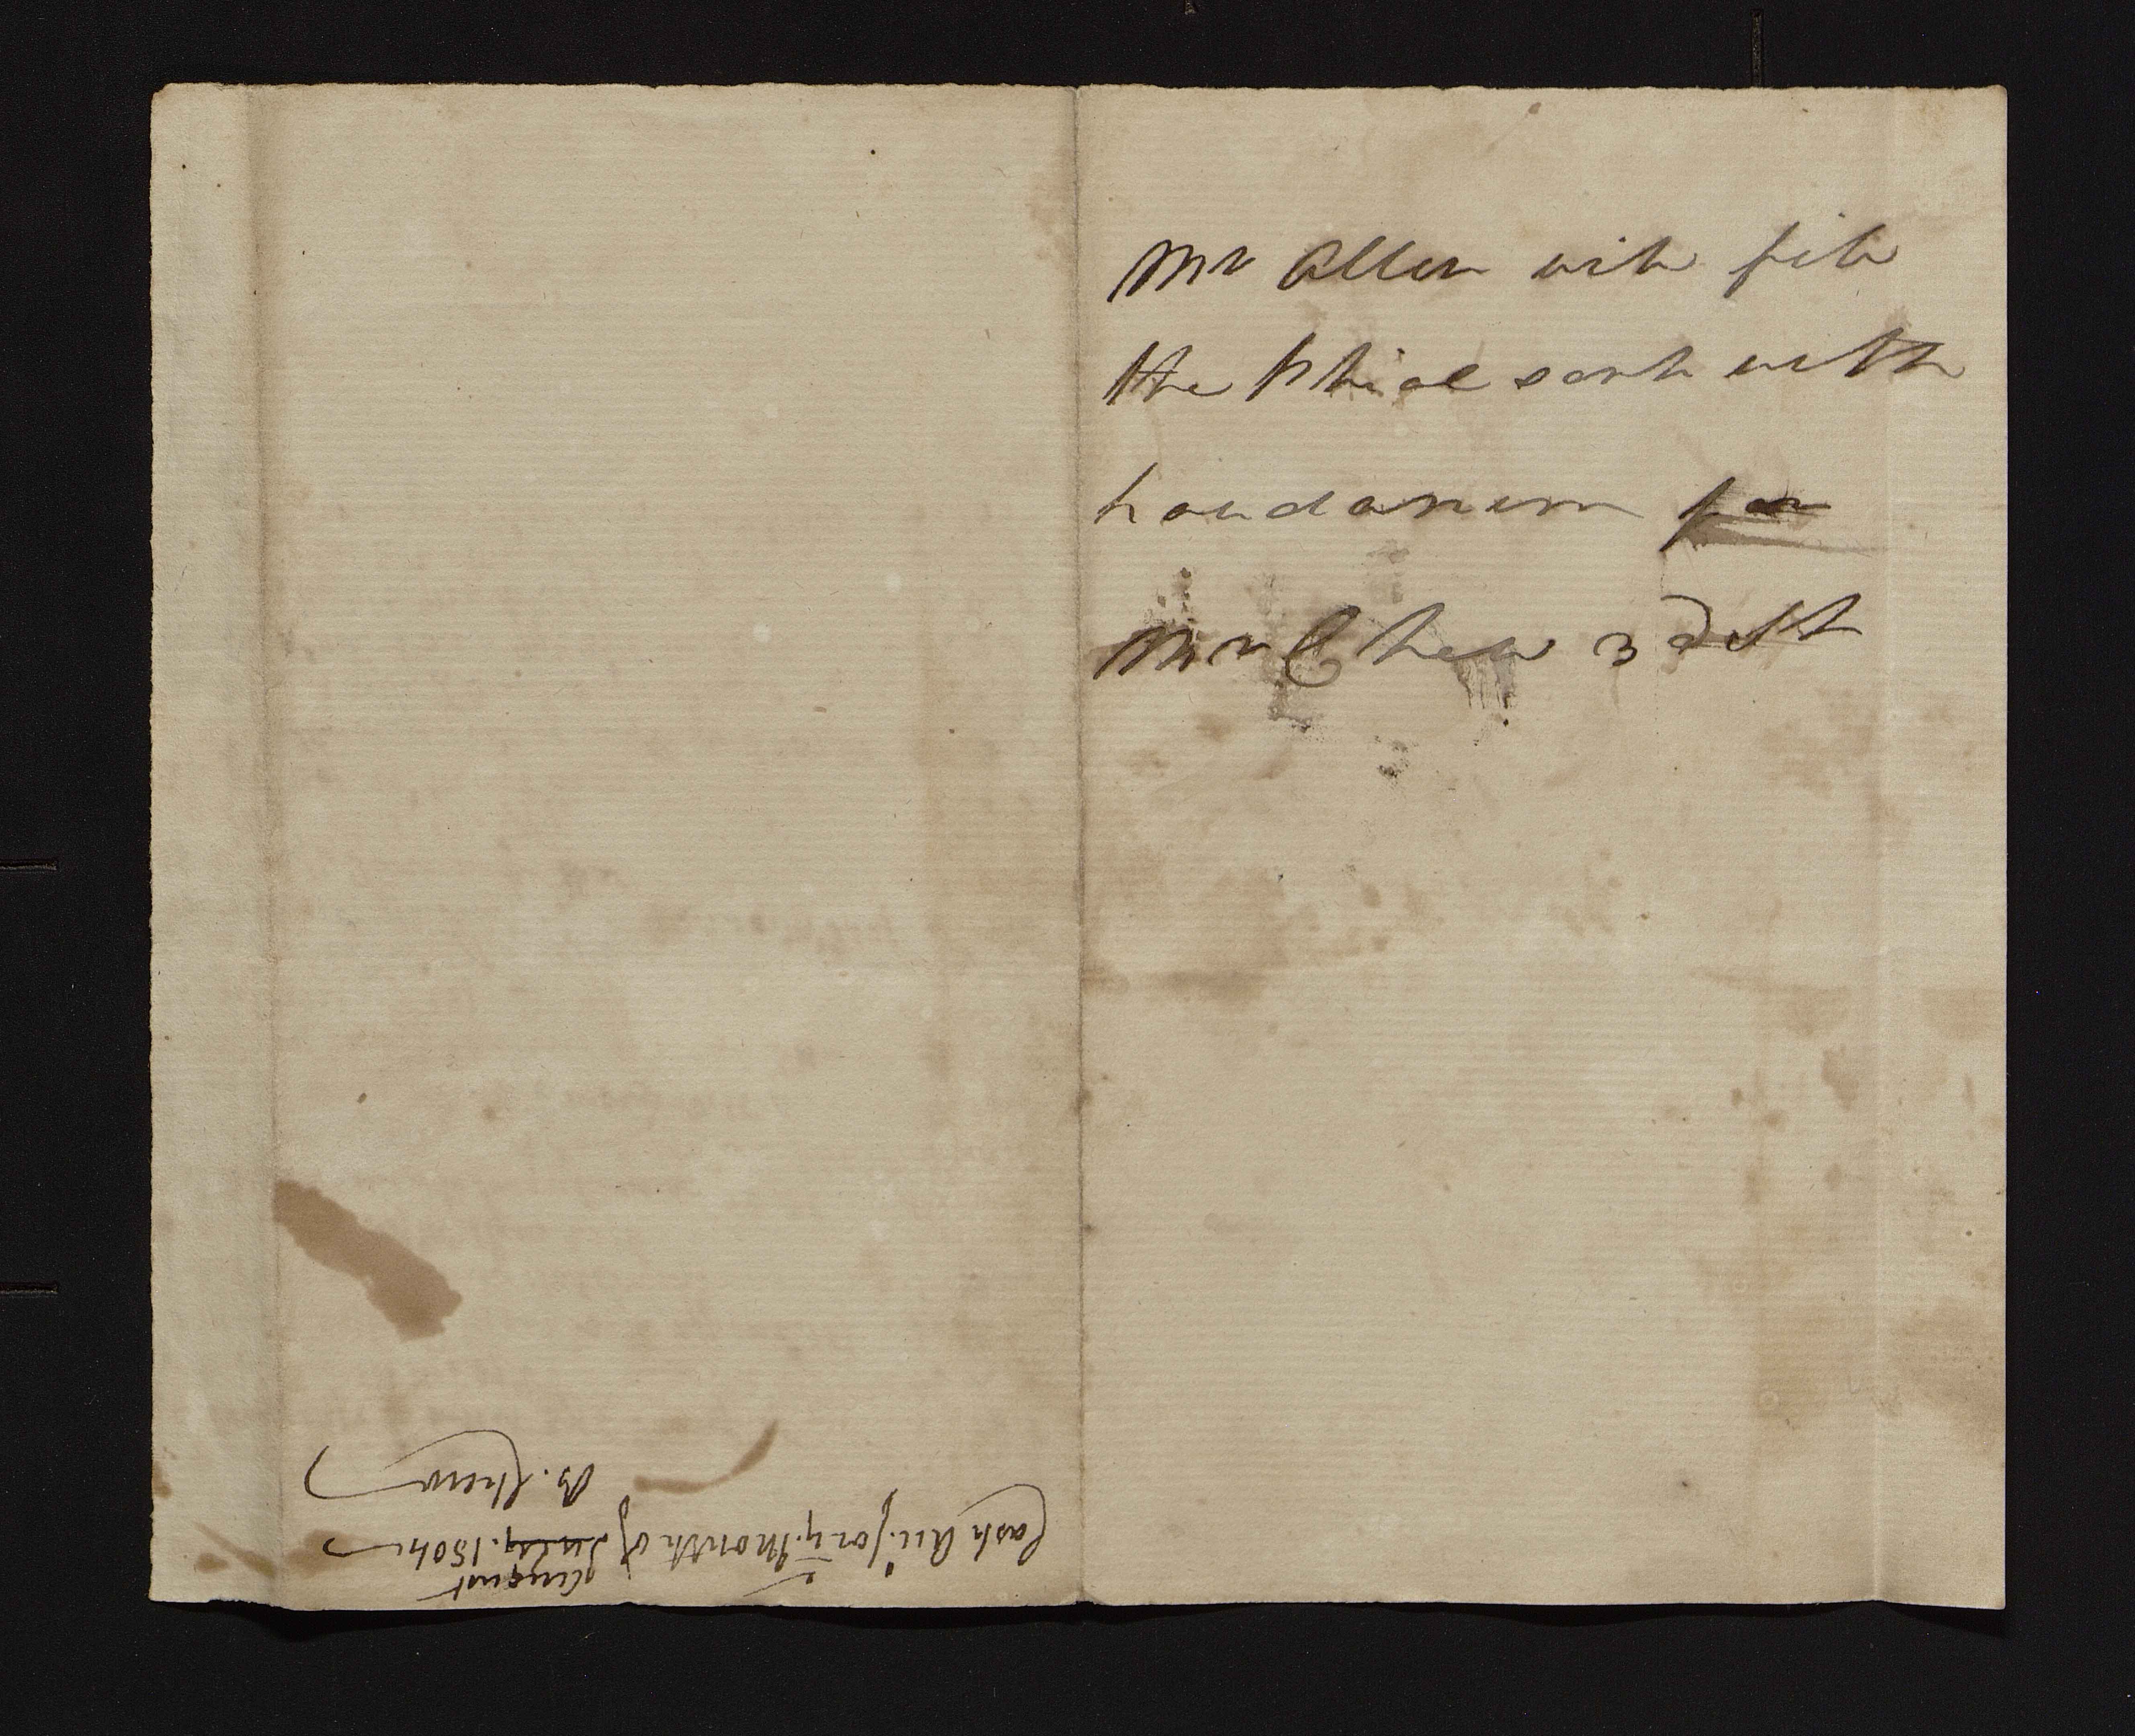 Mr Allen wih fih
the Phial sent with
Laudanum for
Mr Chew
Cash Acc. for ye. Month of July. 1804
August
B. Chew